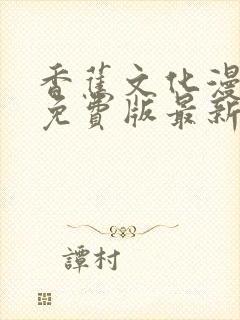 香蕉文化漫
免費版最新
譚村